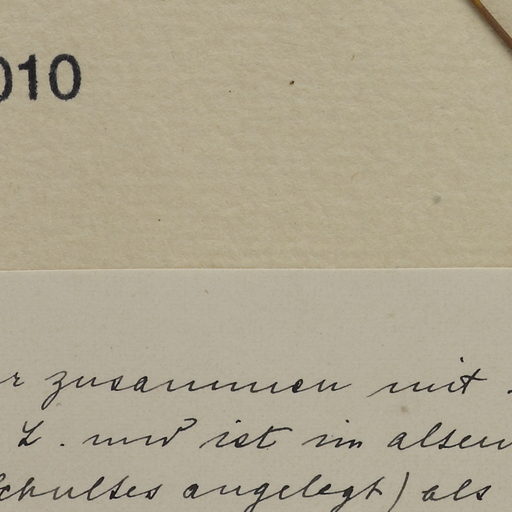 010
r zusammen mit
L. und ist im alten
Schultes angelegt) als